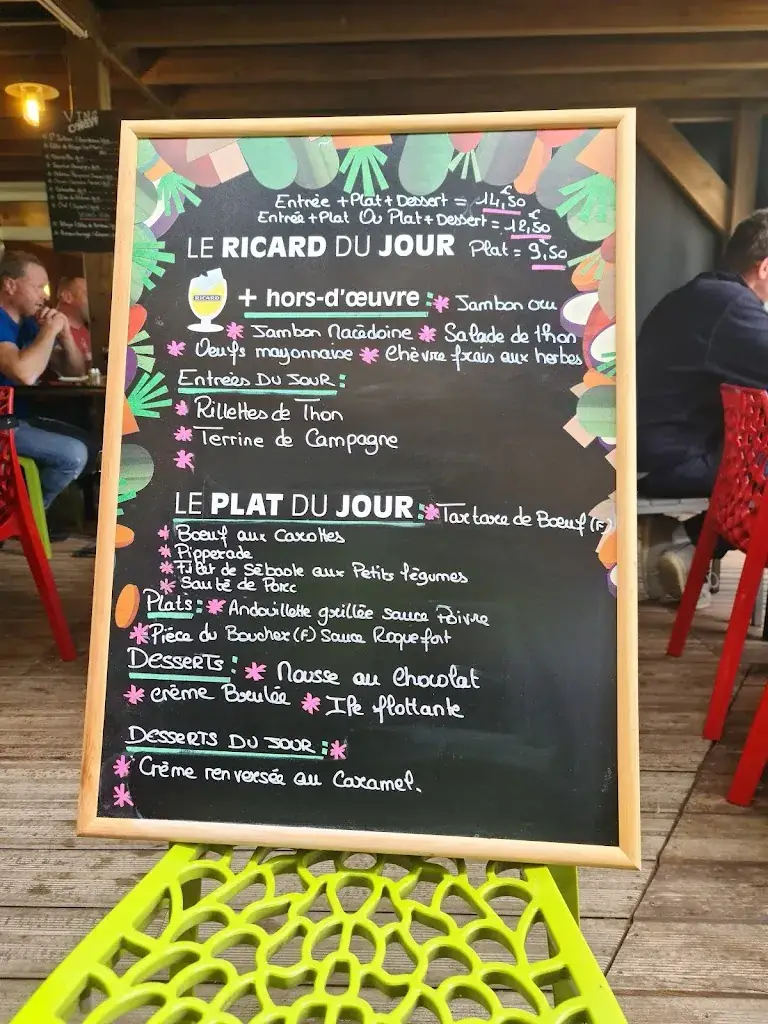 VINS
Entrée + Plat + Dessert = 14,50 €
Entrée + Plat Ou Plat + Dessert = 12,50 €
LE RICARD DU JOUR Plat = 9,50
RICARD + hors-d'œuvre : * Jambon cru
* Jambon Macédoine * Salade de thon
* Oeufs mayonnaise * Chèvre frais aux herbes
Entrées DU JOUR :
* Rillettes de Thon
* Terrine de Campagne
*
LE PLAT DU JOUR : * Tartare de Boeuf (F)
* Boeuf aux carottes
* Pipperade
* Filet de Sébaste aux Petits légumes
* Sauté de Porc
Plats : * Andouillette grillée sauce Poivre
* Pièce du Boucher (F) Sauce Roquefort
Desserts : * Mousse au Chocolat
* crème Brulée * Ile flottante
Desserts DU JOUR : *
* Crème renversée au Caramel.
*